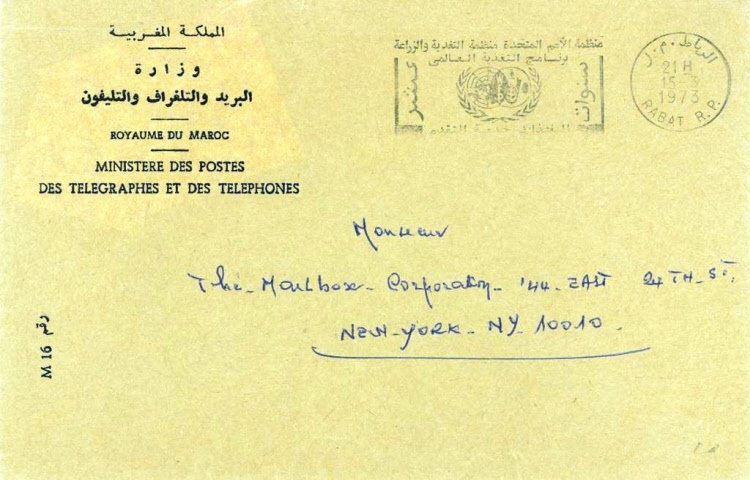 المملكة المغربية
وزارة
البريد والتلغراف والتليفون
ROYAUME DU MAROC
MINISTERE DES POSTES
DES TELEGRAPHES ET DES TELEPHONES
منظمة الأمم المتحدة منظمة التغدية والزراعة
برنامج التغدية العالمي
عشر
سنوات
الرباط.م.ر
21H
15-3
1973
RABAT R.P.
Monsieur
The-Mailbox-Corporation-'44-EAST 24TH-ST.
NEW-YORK-NY-10010.
M 16 رقم